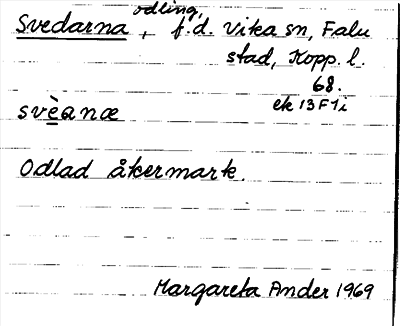 Svedarna, odling, f.d. Vika sn, Falu
stad, Kopp. l.
68.
ek 13F1i
svèanæ
Odlad åkermark.
Margareta Ander 1969